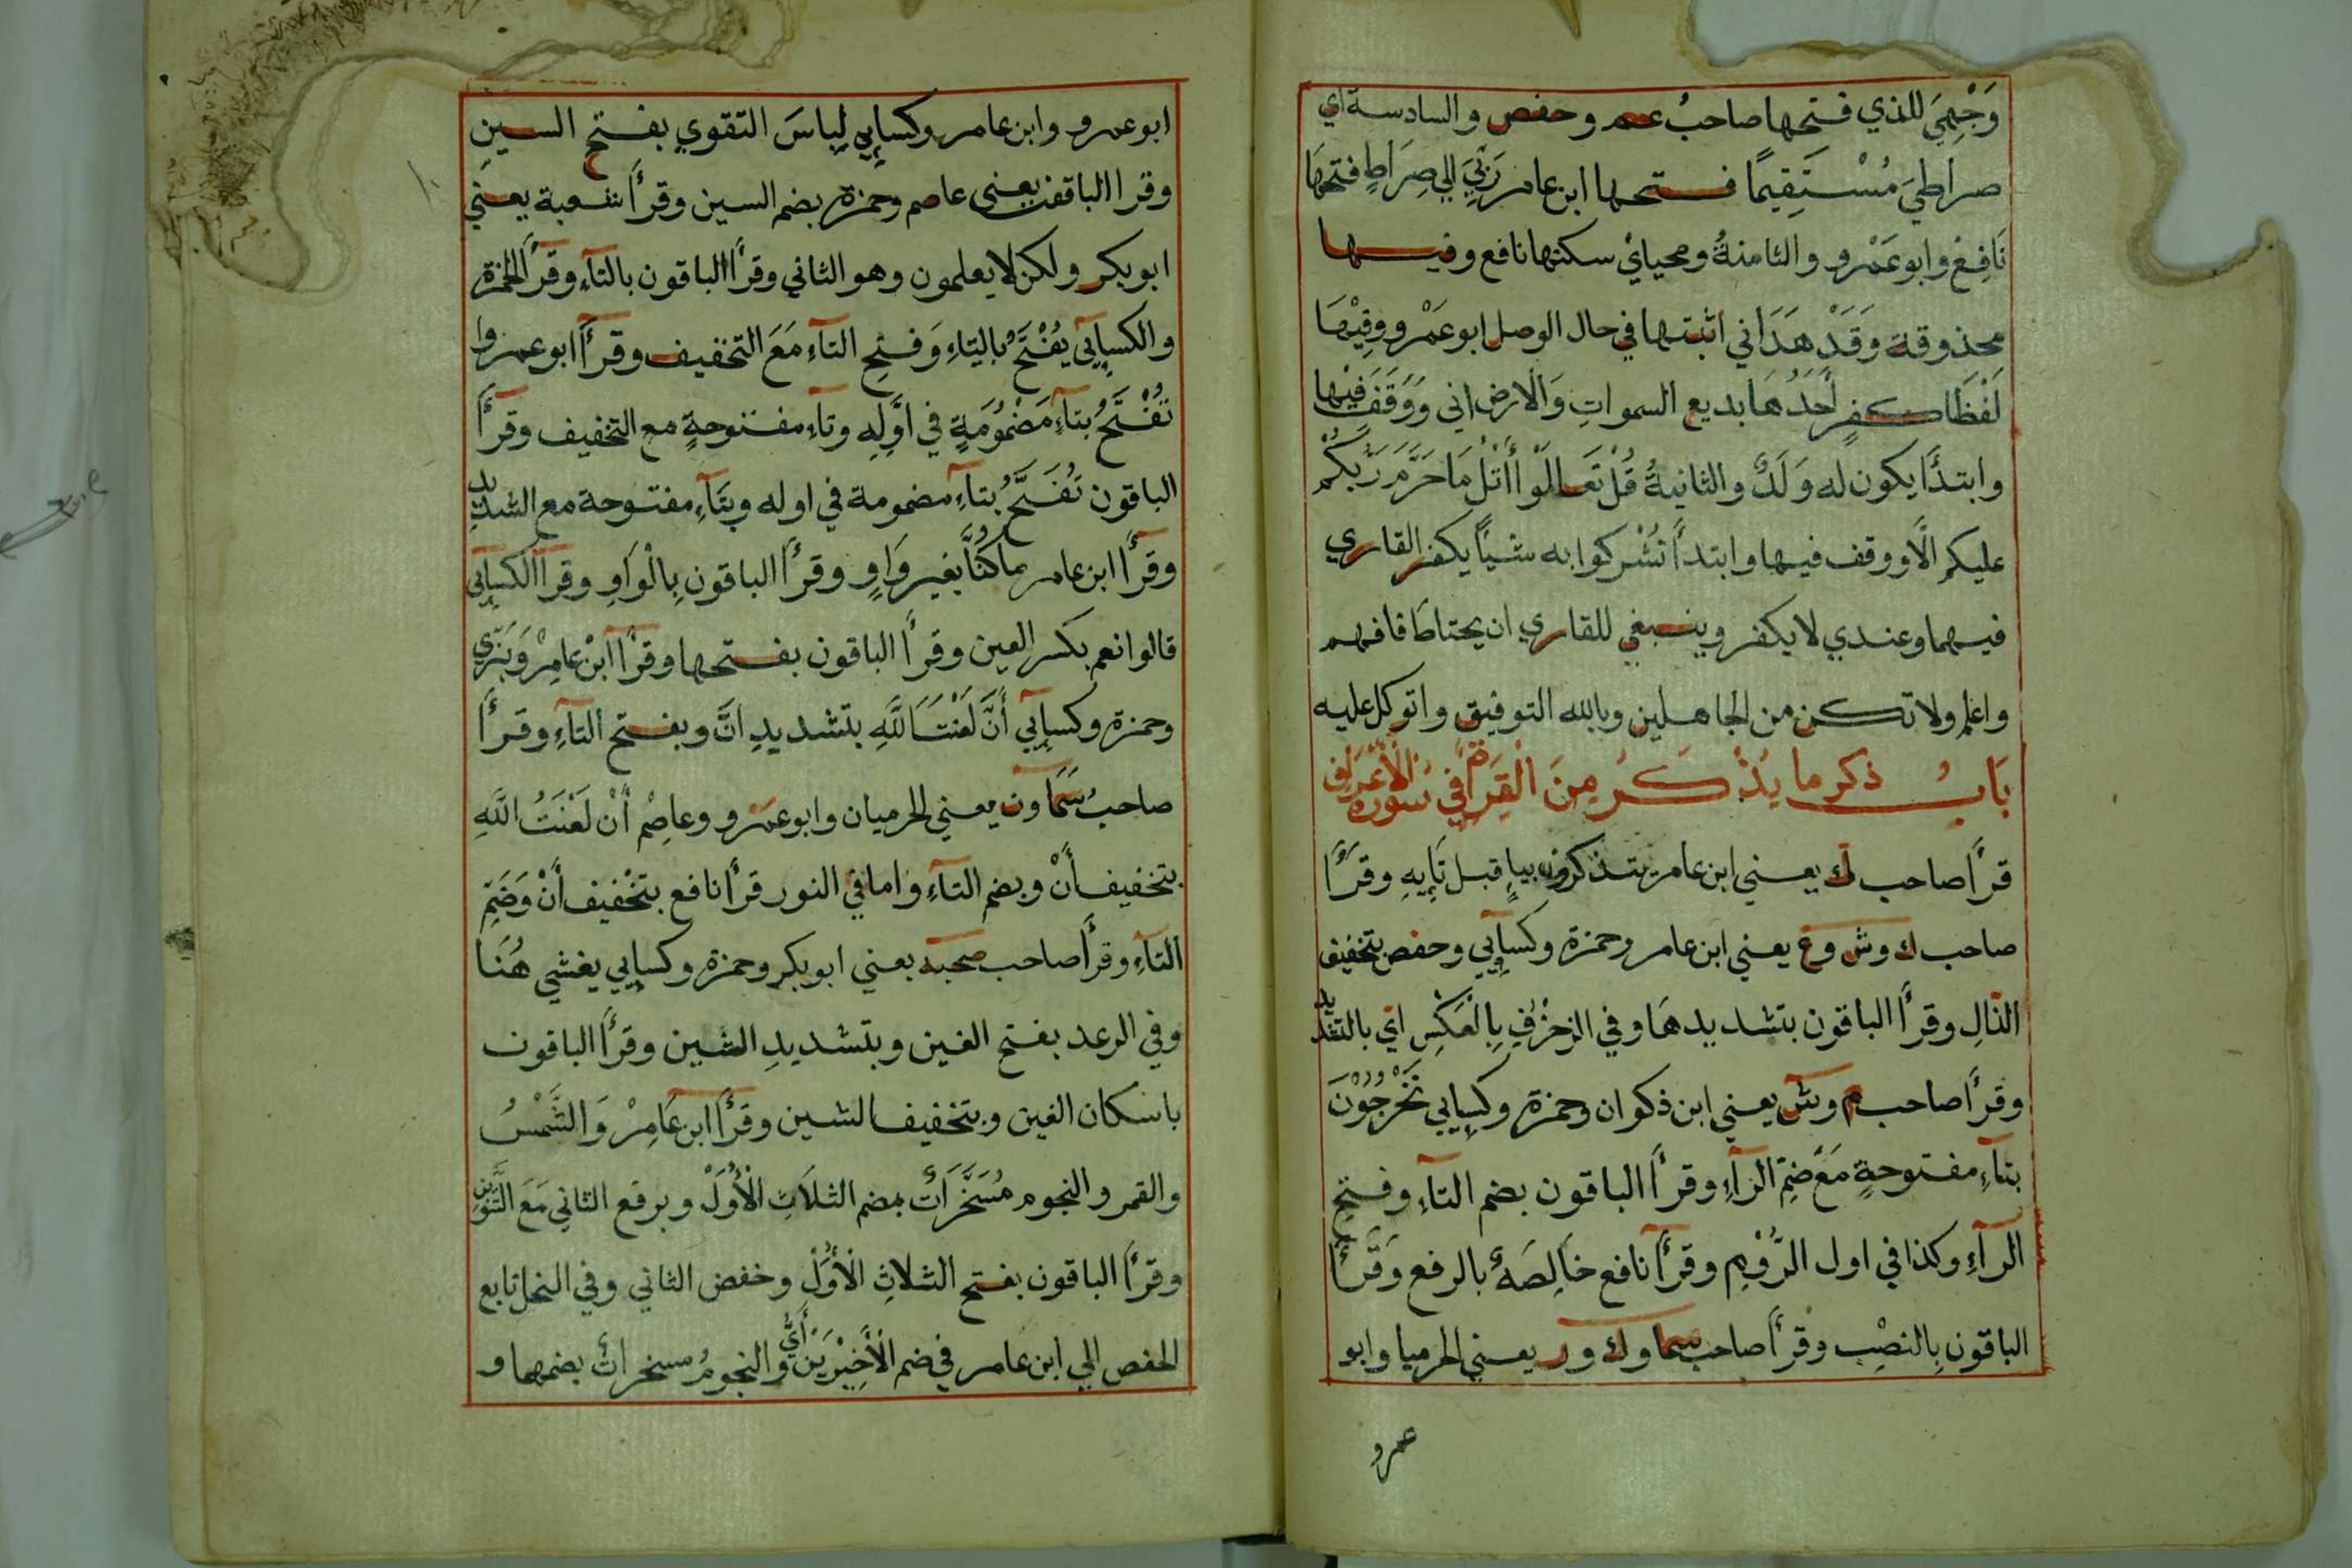 وَجْهِيَ للذي فتحها صاحبُ عم وحفص والسادسة اي
صراطيَ مُسْتَقِيمًا فتحها ابن عامر رَبِّيَ اِلي صِرَاطٍ فتحهَا
نَافِعْ وابو عَمْرو والثامنةُ ومحيايْ سكنها نافع وفيها
محذوفة وَقَدْ هَدَاني اثبتها في حال الوصل ابو عَمْرو وفِيْهَا
لَفْظَا كفرٍ اَحَدُهَا بديع السمواتِ وَالارض اني وَوَقَفَ فيْها
وابتدَأ يكون له وَلَدٌ والثانيةُ قُلْ تَعَالَوْا أَتْلُ مَا حَرَّمَ رَبُّكُمْ
عليكم اَلَّا ووقف فيها وابتدأ تُشْركوا به شيئًا يكفر القاري
فيهما وعندي لا يكفر وينبغي للقاري ان يحتاطَ فافهم
واعلم ولا تكن من الجاهلين وبالله التوفيق واتوكل عليه
بَابُ ذكر ما يذْكَرُ مِنَ الْقِرَاءةِ في سُورة الْاَعْرَافِ
قرأ صاحب ك يعني ابن عامر يتذكرون بياءٍ قبل تَايِهِ وقرَأ
صاحب ك وش وع يعني ابن عامر وحمزة وكسايي وحفص بتخفيف
الذّالِ وقرأ الباقون بتشديدهَا وفي الزخرُفِ بِالعَكسِ اي بالتشديد
وقرأ صاحب م وش يعني ابن ذكوان وحمزة وكسايي تَخْرُجُوْنَ
بتآءِ مفتوحةٍ مَعَ ضَمِّ الرآءِ وقرأ الباقون بضم التآءِ وفتحِ
الرآءِ وكذا في اول الرُّوْمِ وقرأ نافع خَالِصَةٌ بالرفع وَقَرأَ
الباقون بِالنصْبِ وقرأ صاحب سما وك ور يعني الحرميا وابو
عمرو
ابو عمرو وابن عامر وكسايي لِباسَ التقوي بفتح السينِ
وقرا الباقون يعني عاصم وحمزة بضم السين وقرأ شعبة يعني
ابو بكر ولكن لا يعلمون وهو الثاني وقرأ الباقون بالتآءِ وقرأ الحمزة
والكسايي يُفْتَحُ بِاليَاءِ وَفَتْحِ التآءِ مَعَ التخفيف وقرأ ابو عمروا
تُفْتَحُ بتآءِ مَضْمُوْمَةٍ في اَوَّلِهِ وتآءِ مفتوحةٍ مع التخفيف وقرأ
الباقون تُفَتَّحُ بتآءِ مضمومة في اوله وبتَآءِ مفتوحة مع الشديد
وقرأ ابن عامر مَا كُنَّا بغير وَاوٍ وقرأ الباقون بِالْوَاوِ وقرأ الكسايي
قالوا نعم بكسر العين وقرأ الباقون بفتحها وقرأ ابنْ عامِرْ وَبَزّي
وحمزة وكسايي أَنَّ لَعْنَتَ اللَّهِ بتشديدِ انَّ وبفتح التآءِ وقرأَ
صاحبُ سَمَا ون يعني الحرميان وابو عمرو وعاصِم أَنْ لَعْنَتُ اللَّهِ
بتخفيف أَنْ وبضم التآءِ واما في النور قرأ نافع بتَخْفيف أَنْ وَضَمِّ
التآءِ وقرأ صاحب صحبه يعني ابو بكر وحمزة وكسايي يغشي هُنَا
وفي الرعد بفتح الغين وبتشديدِ الشين وقرأ الباقون
باسكان الغين وبتخفيف الشين وقرأ ابن عَامِرْ وَالشَّمْسُ
والقمر والنجوم مُسَخَّرَاتٌ بضم الثلَاثِ الْأُوَلْ وبرفع الثاني مَعَ التَّنْوِينِ
وقرأ الباقون بفتح الثلاثِ الْأُوَلْ وخفض الثاني وفي النحل تابع
الحفص الي ابن عامر في ضم الْاَخِيْرَيْنِ أَيُّ والنجومُ مسخراتٌ بضمهما و